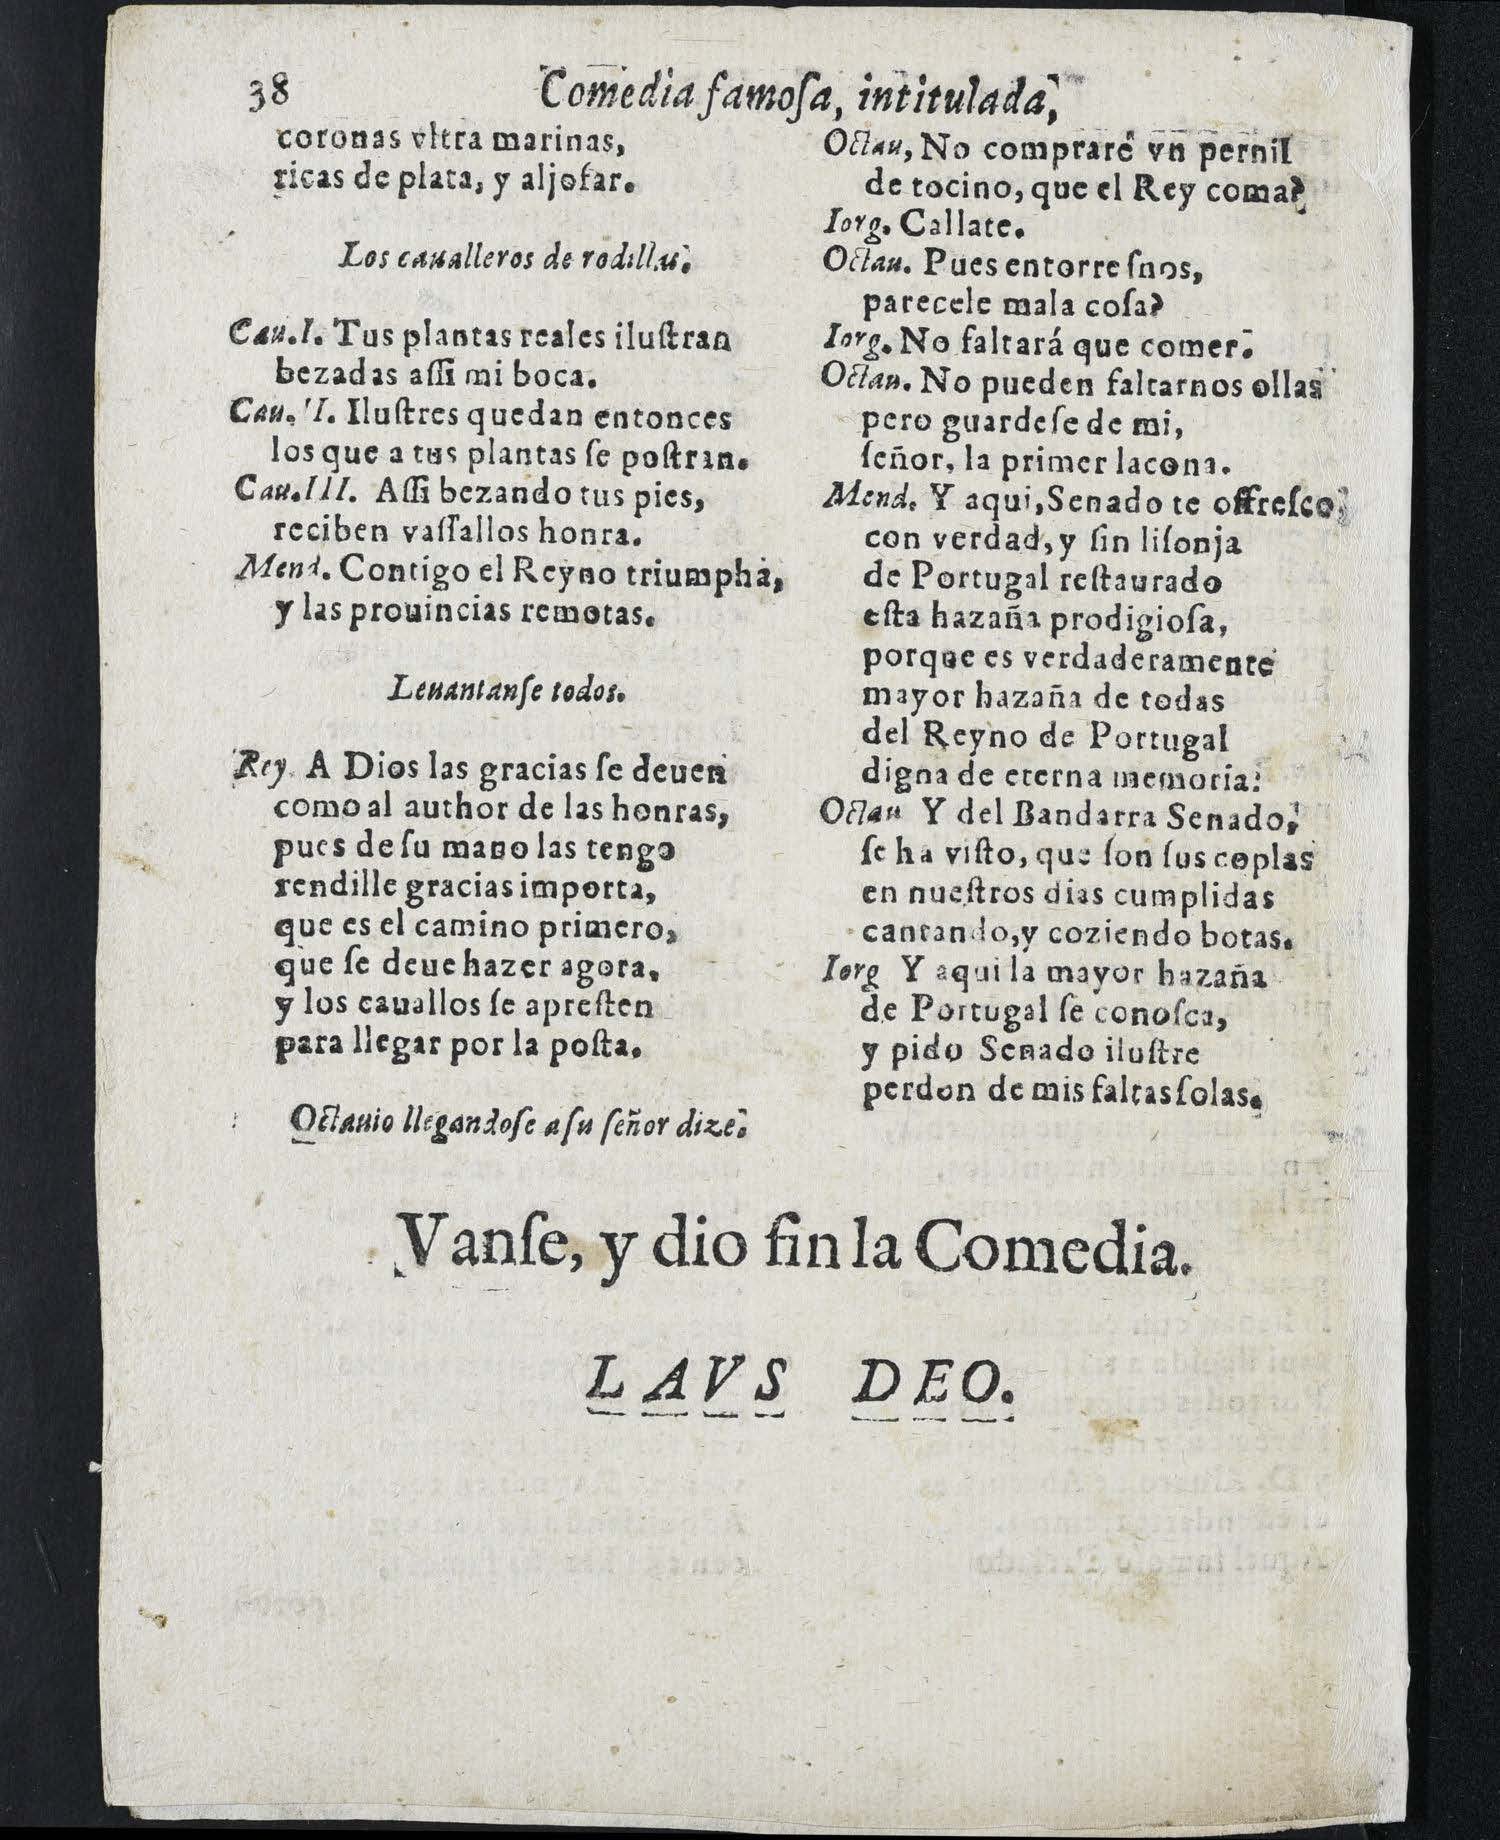 38
Comedia famoſa, intitulada,
coronas vltra marinas,
ricas de plata, y aljofar.
Los caualleros de rodillas.
Cau.I. Tus plantas reales iluſtran
bezadas aſſi mi boca.
Cau. II. Iluſtres quedan entonces
los que a tus plantas ſe poſtran.
Cau.III. Aſſi bezando tus pies,
reciben vaſſallos honra.
Mend. Contigo el Reyno triumpha,
y las prouincias remotas.
Leuantanſe todos.
Rey. A Dios las gracias ſe deuen
como al author de las honras,
pues de ſu mano las tengo
rendille gracias importa,
que es el camino primero,
que ſe deue hazer agora,
y los cauallos ſe apreſten
para llegar por la poſta.
Octauio llegandoſe a ſu ſeñor dize.
Octau, No compraré vn pernil
de tocino, que el Rey coma?
Iorg. Callate.
Octau. Pues entorreſnos,
parecele mala coſa?
Iorg. No faltará que comer.
Octau. No pueden faltarnos ollas
pero guardeſe de mi,
ſeñor, la primer lacona.
Mend. Y aqui, Senado te offreſco,
con verdad, y ſin liſonja
de Portugal reſtaurado
eſta hazaña prodigioſa,
porque es verdaderamente
mayor hazaña de todas
del Reyno de Portugal
digna de eterna memoria.
Octau Y del Bandarra Senado,
ſe ha viſto, que ſon ſus coplas
en nueſtros dias cumplidas
cantando, y coziendo botas.
Iorg Y aqui la mayor hazaña
de Portugal ſe conoſca,
y pido Senado iluſtre
perdon de mis faltas ſolas.
Vanſe, y dio fin la Comedia.
LAVS DEO.